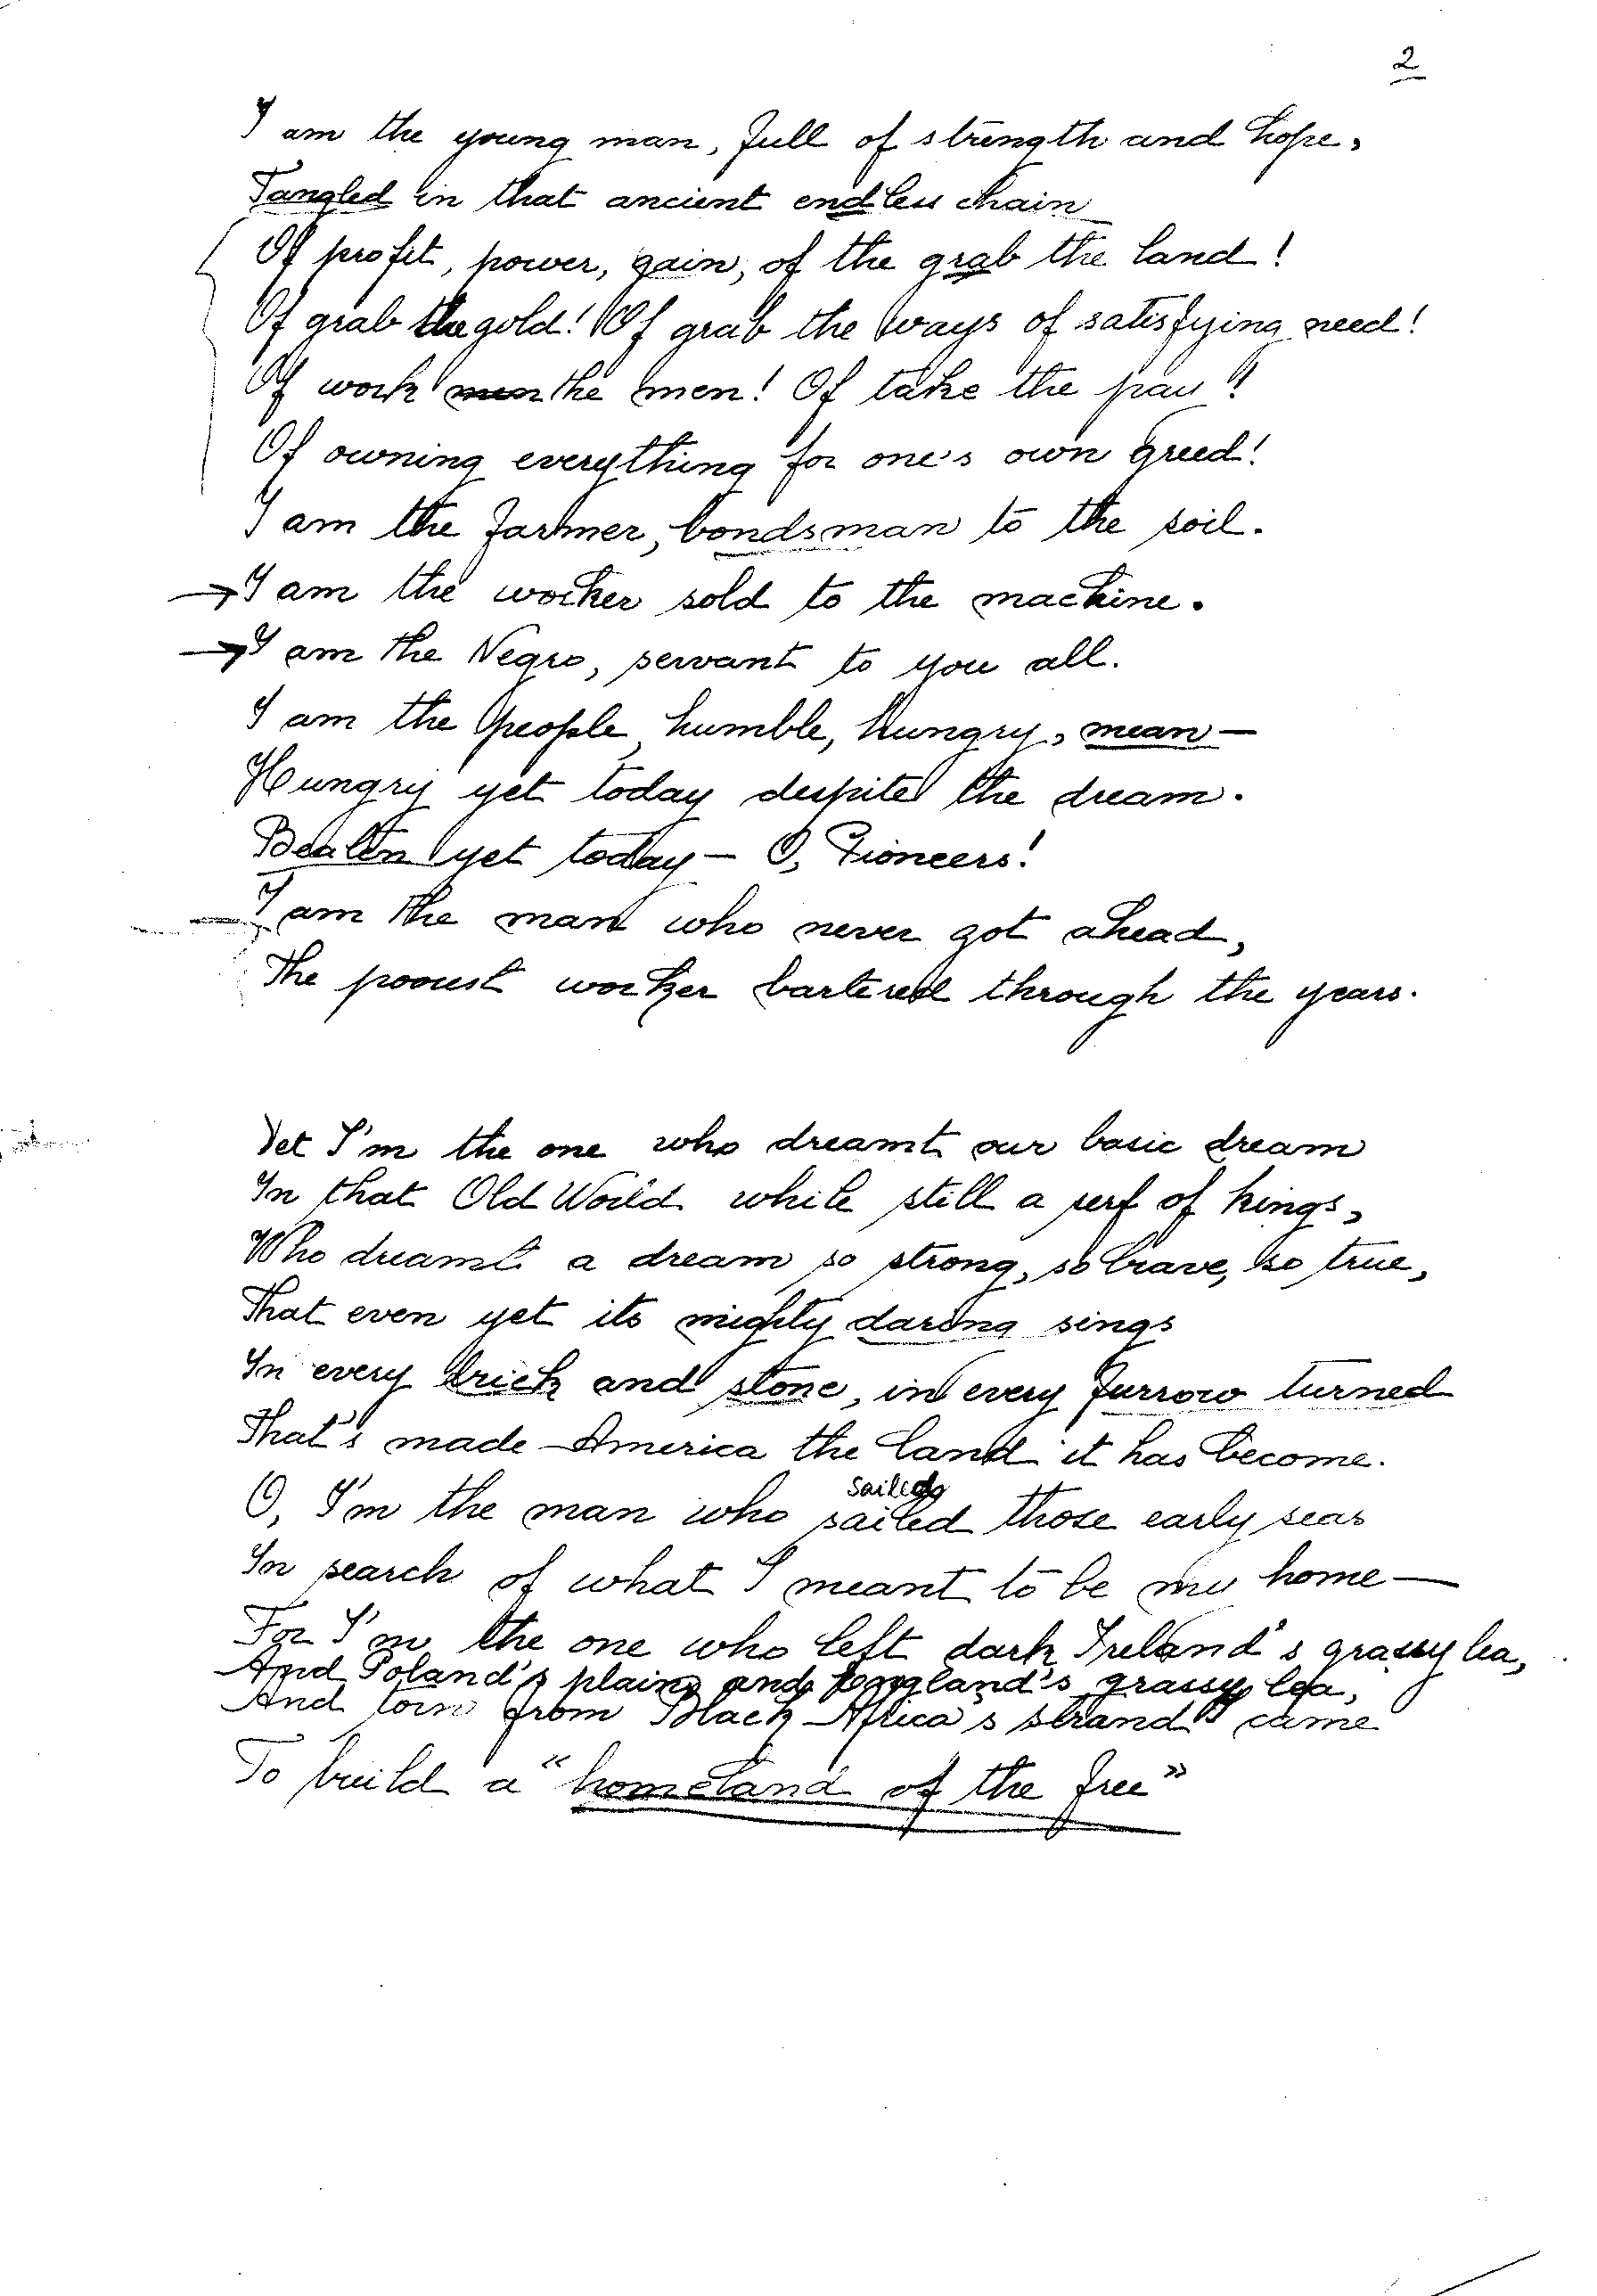 2
I am the young man, full of strength and hope,
Tangled in that ancient endless chain
Of profit, power, gain, of the grab the land!
Of grab the gold! Of grab the ways of satisfying need!
Of work men the men! Of take the pay!
Of owning everything for one's own greed!
I am the farmer, bondsman to the soil.
→ I am the worker sold to the machine.
→ I am the Negro, servant to you all.
I am the people, humble, hungry, mean —
Hungry yet today despite the dream.
Beaten yet today — O, Pioneers!
I am the man who never got ahead,
The poorest worker bartered through the years.
Yet I'm the one who dreamt our basic dream
In that Old World while still a serf of kings,
Who dreamt a dream so strong, so brave, so true,
That even yet its mighty daring sings
In every brick and stone, in every furrow turned
That's made America the land it has become.
sailed
O, I'm the man who sailed those early seas
In search of what I meant to be my home —
For I'm the one who left dark Ireland's grassy lea,
And Poland's plain, and England's grassy lea,
And torn from Black Africa's strand I came
To build a "homeland of the free"